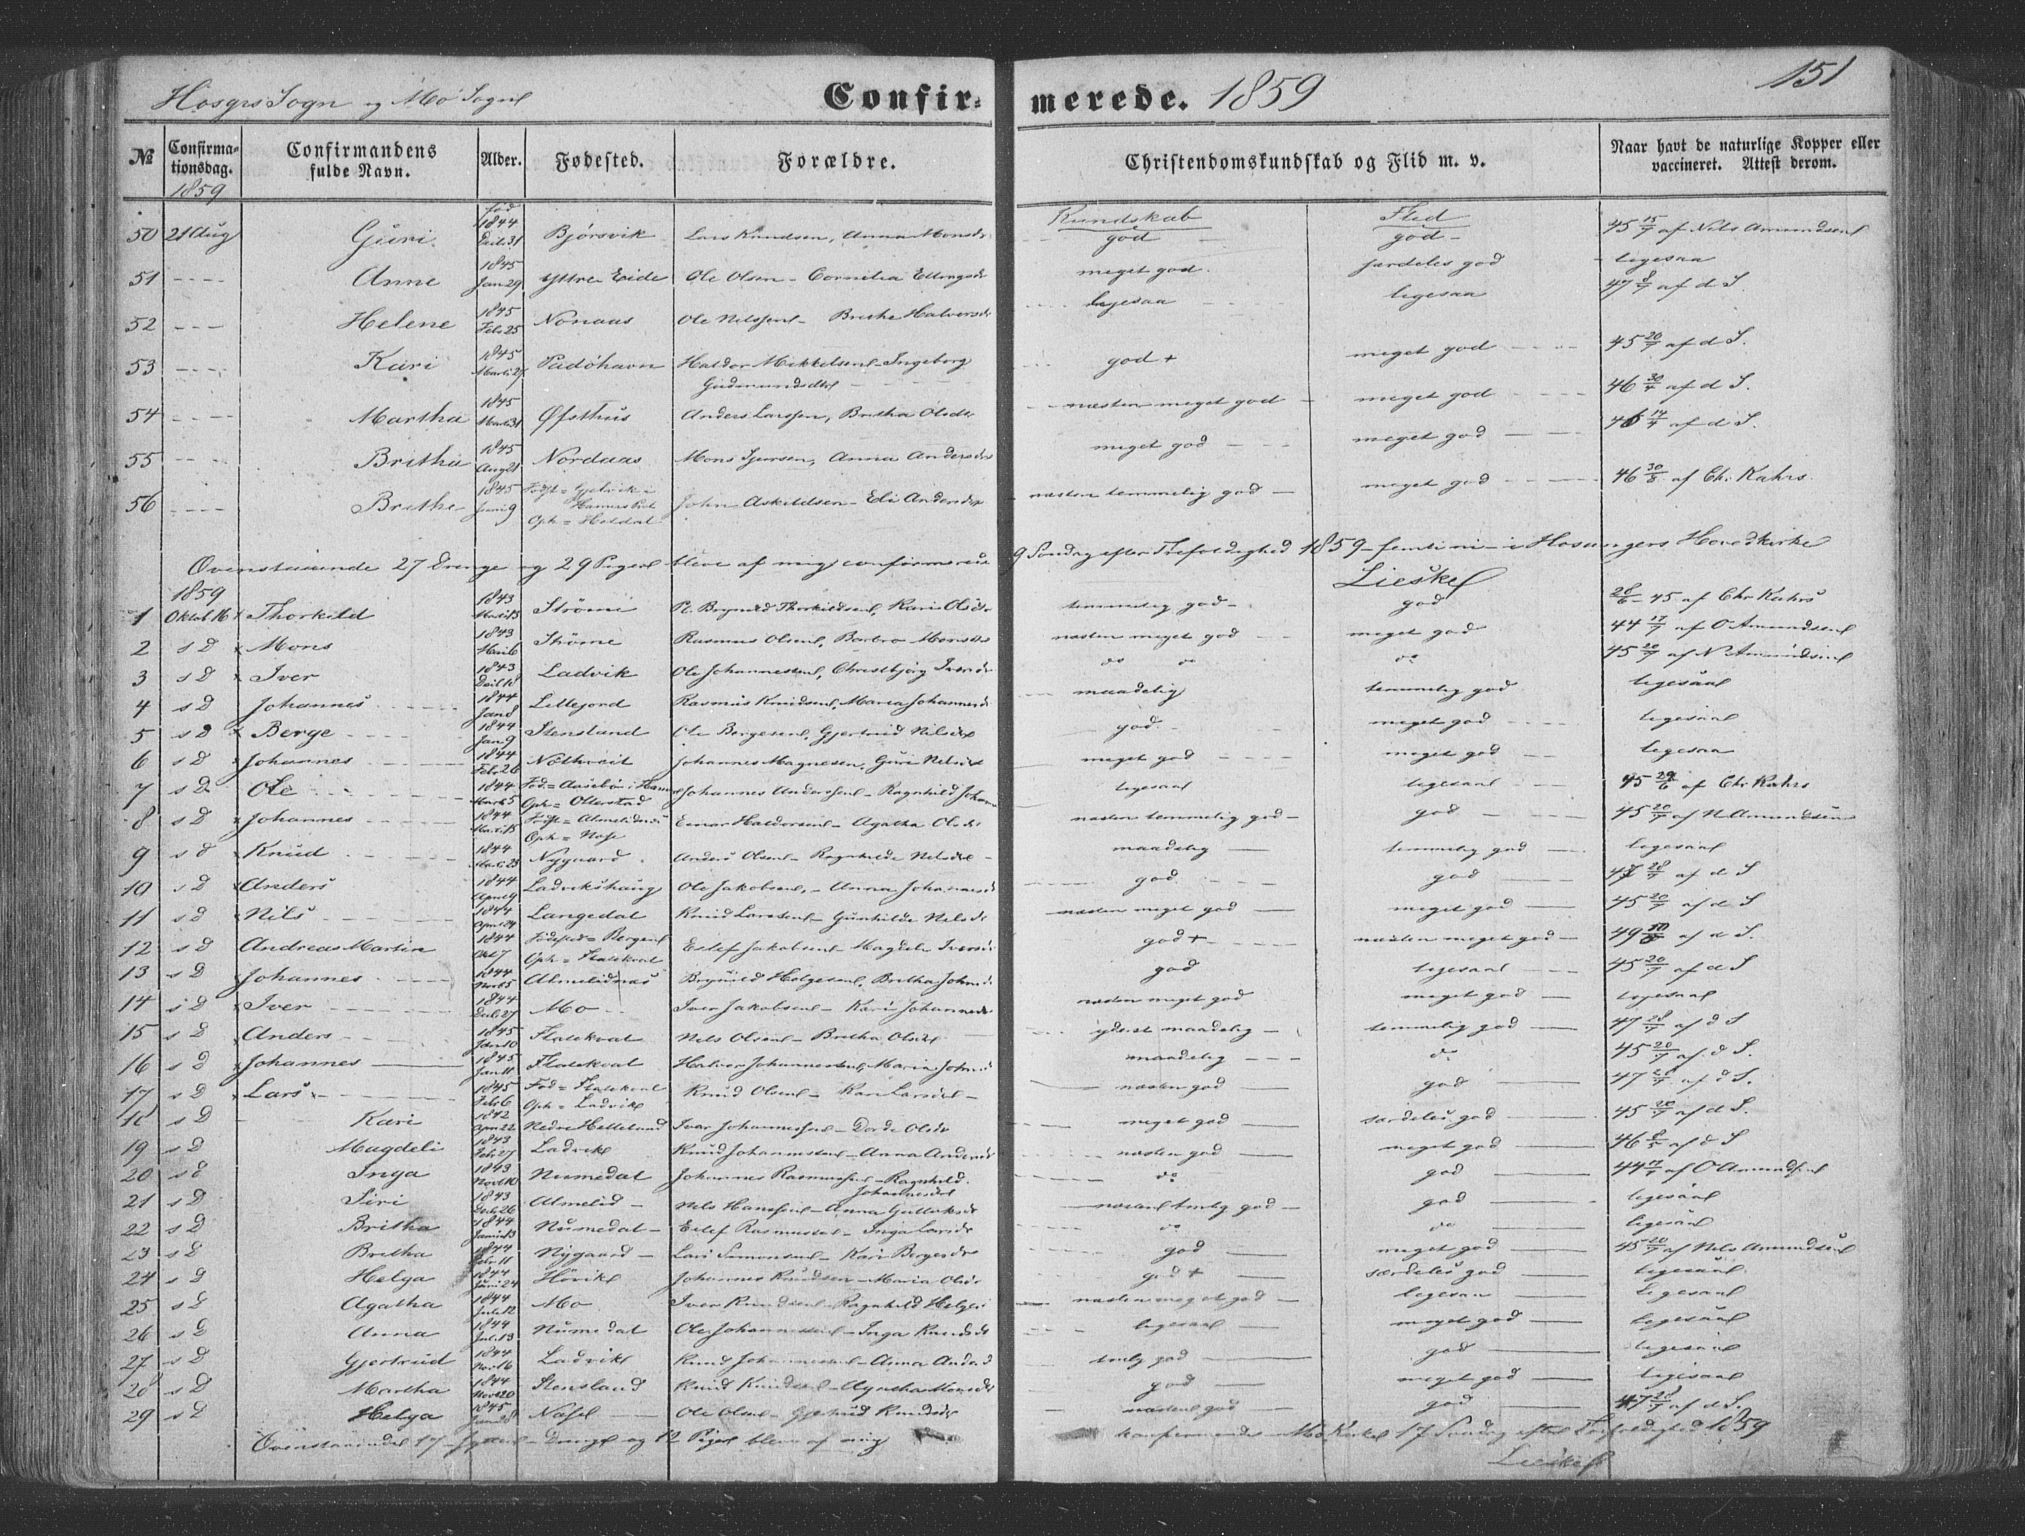 Hosgrs Sogn og Mo Sogn
Confirmerede. 1859
151
№ Confirmationsdag. Confirmandens fulde Navn. Alder. Fødested. Forældre. Christendomskundskab og Flid m. v. Naar havt de naturlige Kopper eller vaccineret. Attest derom.
1859 født Kundskab Flid
50 21 Aug Guri 1844 Bjørsvik Lars Knudsen, Anna Monsdr god god 45 15/7 af Nils Amundsen
51 Anne 1845 Jan 29 Yttre Eide Ole Olsen - Cornelia meget god særdeles god ligesaa
52 Helene 1845 Febr 25 Nonaas Ole Nilssen Brithe Halversdr ligesaa ligesaa 47 8/7 af d S.
53 Kari 1845 Marts 27 Padøhavn Haldor Mikkelsen Ingeborg Gudmundsdtr god + meget god 45 20/7 af d S.
54 Martha 1845 Marts 31 Øfsthus Anders Larssen, Britha Olsdtr næsten meget god meget god 46 30/4 af d S.
55 Britha 1845 Aug 21 Nordaas Mons Sjursen, Anna Andersdr meget god meget god 46 14/7 af d S.
56 Brithe 1845 Juni 9 Fødst = Gjelvik i Hammers Oph = Holdal John Askildsen - Eli Andersdr næsten temmelig god meget god 46 30/8 af Ch. Kahrs
Ovenstaaende 27 Drenge og 29 Piger bleve af mig confirmerede 9 Søndag efter Trefoldighed 1859 - femti ni - i Hosangers Hovedkirke
1859
1 Oktob 16 Thorkild 1843 Strømi Pl. Brynild Thorkildsen, Kari Olsdr temmelig god god 28/6 45 af Chr Kahrs
2 s D Mons 1843 Strømi Rasmus Olsen, Barbro Monsdr næsten meget god meget god 44 17/7 af O Amundsen
3 s D Iver 1843 Ladvik Ole Johannessen, Christbjørg Iversdr do do do 45 20/7 af N Amundsen
4 s D Johannes 1844 Jan 8 Lillejord Rasmus Knudsen, Maria Johannesdr maadelig temmelig god ligesaa
5 s D Berge 1844 Jan 9 Stensland Ole Bergesen, Gjertrud Nilsdtr god meget god ligesaa
6 s D Johannes 1844 Febr 26 Nøttveit Johannes Magnesen, Guri Nilsdtr meget god meget god ligesaa
7 s D Ole 1844 Marts 5 Fød = Aasebø i Oph = Otterstad Johannes Anderssen - Ragnhild ligesaa ligesaa 45 29/6 af Chr Kahrs
8 s D Johannes 1844 Fødst = Oph = Nøse Einar Haldorsen - Agatha næsten temmelig god god 45 20/7 af N Amundsen
9 s d Knud 1844 Nygaard Anders Olsen - Ragnhilde Nilsdtr maadelig temmelig god ligesaa
10 s D Anders 1844 April 9 Ladvikshaug Ole Jakobsen - Anna Johannesdr god god 47 28/7 af d S
11 s d Nils 1844 Langedal Knud Larssen - Gunhilde Nilsdr næsten meget god meget god 45 20/7 af d S
12 s d Andreas Martin 1844 Okt 7 Fødested = Bergen Oph = Flatekval Eilef Jakobsen - Magdeli Iversdr god + næsten meget god 49 af d S.
13 s D Johannes 1844 Almelidnæs Brynild Helgesen, Britha god ligesaa 45 20/7 af d S
14 s D Iver 1844 Decb 27 Mo Iver Jakobsen - Kari Johannesdr næsten meget god meget god ligesaa
15 s D Anders 1845 Flatekval Nils Olsen - Britha Olsdtr yderst maadelig temmelig god 47 28/7 af d S
16 s D Johannes 1845 Jan 11 Flatekval Halvor Johannessen, Maria maadelig do 45 20/7 af d S.
17 s D Lars 1845 Febr 6 Fød = Flatekval Oph = Ladvik Knud Olsen - Kari Larsdtr næsten god god 47 28/7 af d S.
18 s D Kari 1842 April 22 Nedre Helleland Ivar Johannessen - Dorde Olsdr meget god særdeles god 45 20/7 af d S.
19 s D Magdeli 1843 Febr 27 Ladvik Knud Johannessen - Anna Andersdr næsten god meget god 46 8/5 af d S
20 s d Inga 1843 Numedal Johannes Rasmussen - Ragnhild Johannesdtr do god 44 17/7 af O Amundsen
21 s D Siri 1843 Decb 26 Almelid Nils Hanssen - Anna næsten temlig god god ligesaa
22 s D Britha 1844 Numedal Eilef Rasmussen - Inga Larsdr do do ligesaa
23 s D Britha 1844 Febr 11 Nygaard Lars Simonsen - Kari Bergesdr god meget god 45 20/7 af Nils Amundsen
24 s D Helga 1844 Juni 24 Høvik Johannes Knudsen - Maria Olsdr god + særdeles god ligesaa
25 s D Agatha 1844 Juli 12 Mo Iver Knudsen - Ragnhild næsten meget god ligesaa ligesaa
26 s D Anna 1844 Juli 13 Numedal Ole Johannessen - Inga Knudsdr ligesaa meget god ligesaa
27 s D Gjertrud 1844 Ladvik Knud Johannessen - Anna temlig god god ligesaa
28 s D Martha 1844 Novb 20 Stensland Knud Knudsen - Agatha Monsdr god meget god ligesaa
29 s D Helga 1845 Nøse Ole Olsen - Gjertrud Knudsdr næsten god god 47 28/7 af d S.
Ovenstaaende 17 sytten Drenge og 12 Piger bleve af mig konfirmerede i Mo Kirke 17 Søndag efter Trefoldighed 1859